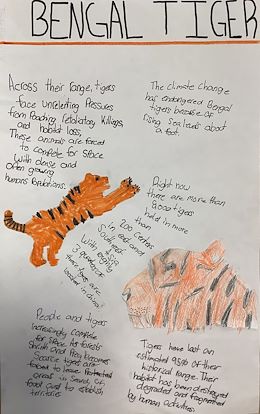 BENGAL TIGER
Across their range, tigers
face unrelenting pressures
from poaching, retaliatory killings,
and habitat loss,
These animals are forced
to compete for space
with dense and
often growing
human populations.
The climate change
has endangered Bengal
tigers because of
rising sea levels about
a foot.
Right now
there are more than
8000 tigers
held in more
than
200 centers
in east and
Southeast
Asia
With
3
tigers are
located in China!
People and tigers
increasingly compete
for space. As forests
shrink and prey becomes
scarce tigers are
forced to leave
great in search of
food and to establish
territories
Tigers have lost an
estimated 95% of their
historical range. Their
habitat has been destroyed
and degraded and fragmented
by human activities.